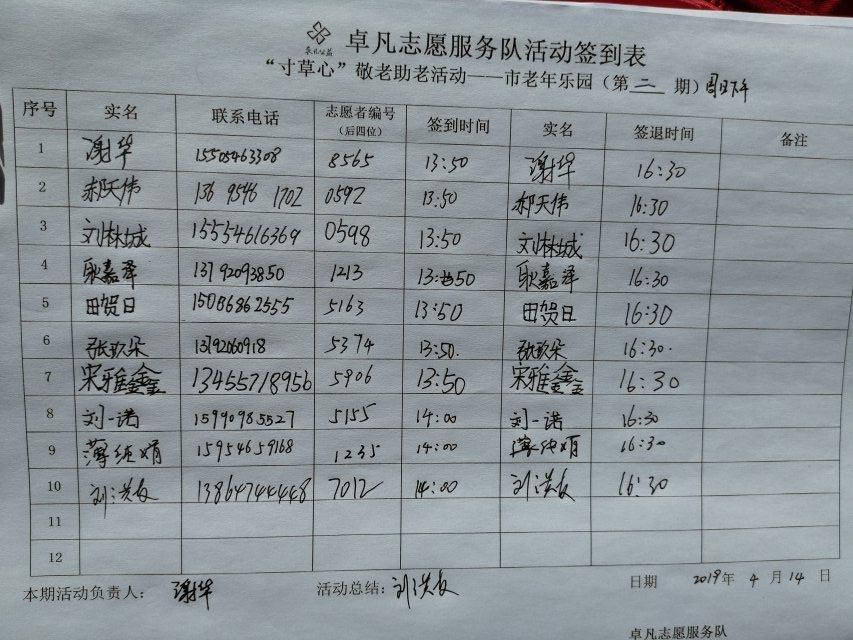 卓凡志愿服务队活动签到表
“寸草心”敬老助老活动——市老年乐园(第 二 期)周日下午
序号 实名 联系电话 志愿者编号(后四位) 签到时间 实名 签退时间 备注
1 谢华 15505463308 8565 13:50 谢华 16:30
2 郝天伟 136 9546 1702 0592 13:50 郝天伟 16:30
3 刘林城 15554616369 0598 13:50 刘林城 16:30
4 耿嘉泽 13792093850 1213 13:50 耿嘉泽 16:30
5 田贺日 15086862555 5163 13:50 田贺日 16:30
6 张玖朵 13792060918 5374 13:50. 张玖朵 16:30.
7 宋雅鑫 13455718956 5906 13:50 宋雅鑫 16:30
8 刘一诺 15990985527 5155 14:00 刘一诺 16:30
9 薄纯娟 15954659168 1235 14:00 薄纯娟 16:30
10 刘洪友 13864744448 7012 14:00 刘洪友 16:30
11
12
本期活动负责人: 谢华 活动总结: 刘洪友 日期 2019年 4 月 14 日
卓凡志愿服务队